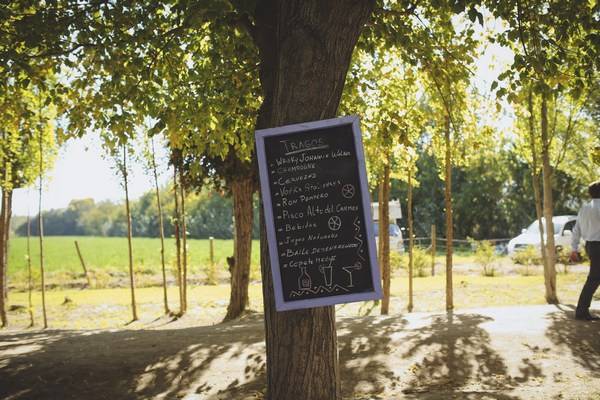 TRAGOS
- WHISKY JOHNNIE WALKER
- CHAMPAGNE
- CERVEZAS
- VODKA
- RON PAMPERO
- PISCO ALTO DEL CARMEN
- Bebidas
- Jugos Naturales
- BAILE DESENFRENADO
CON COPETE